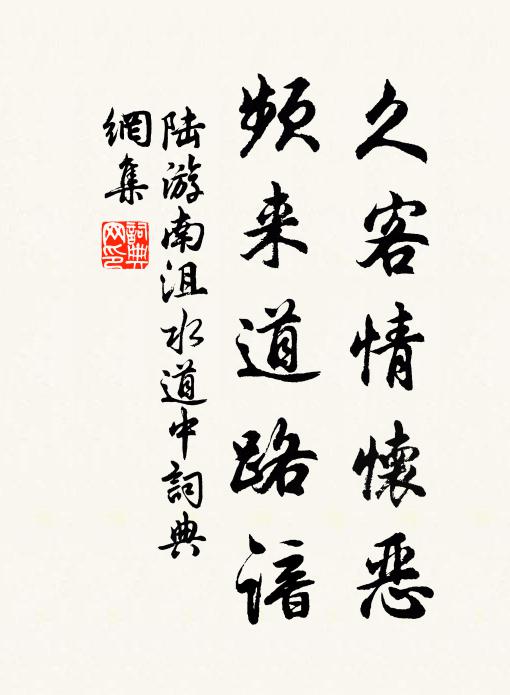 久客情懷恶
频来道路谙
陆游南沮水道中詞典
網集
詞典
网印